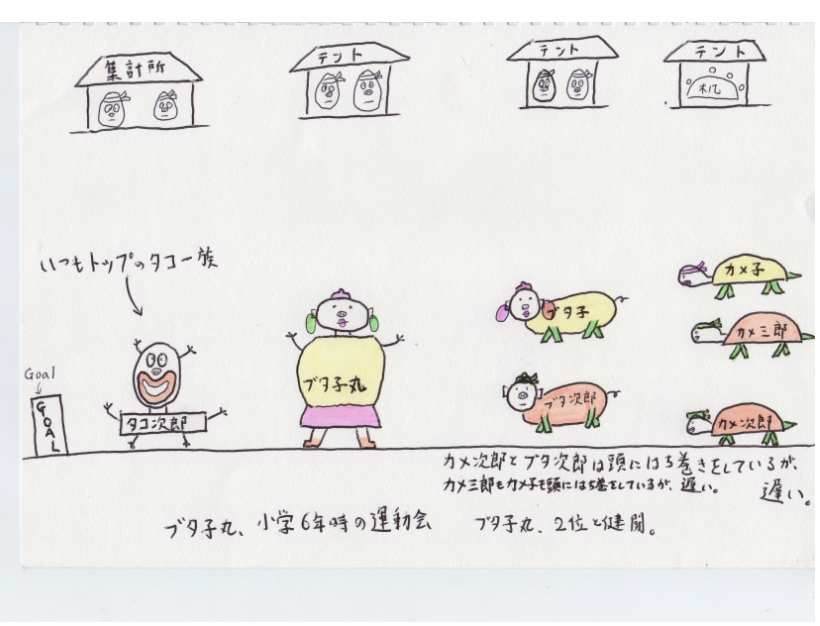 集計所
テント
テント
テント
木几
いつもトップのタコ一族
Goal
GOAL
タコ次郎
ブタ子丸
ブタ子
ブタ次郎
カメ子
カメ三郎
カメ次郎
カメ次郎とブタ次郎は頭にはち巻きをしているが、
遅い。
カメ三郎もカメ子も頭にはち巻をしているが、遅い。
ブタ子丸、小学6年時の運動会
ブタ子丸、2位と健闘。